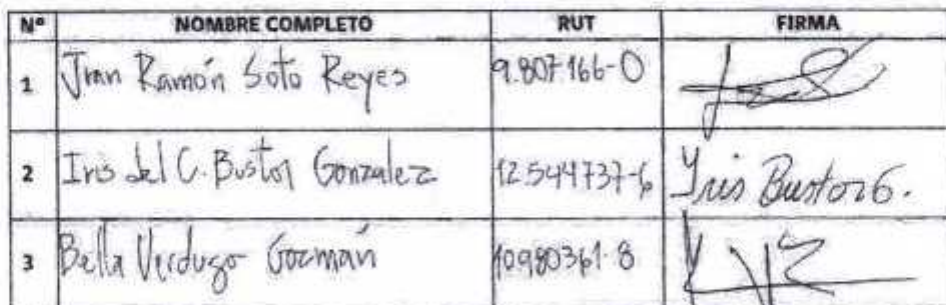 Nº NOMBRE COMPLETO RUT FIRMA
1 Juan Ramón Soto Reyes 9.807.166-0
2 Iris del C. Bustos Gonzalez 12.544737-6 Iris Bustos G.
3 Bella Verdugo Gozmán 10980361-8